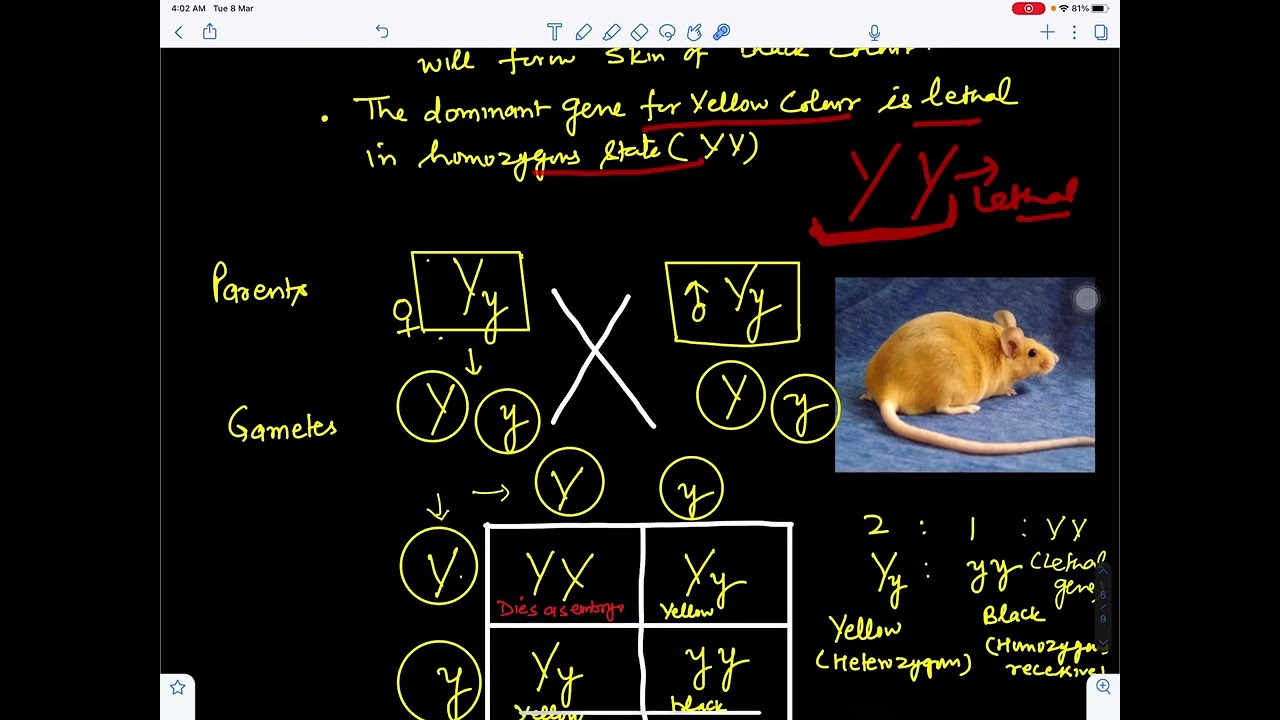 4:02 AM Tue 8 Mar
81%
will form skin of black colour.
• The dominant gene for Yellow Colour is lethal
in homozygous state (YY)
YY → Lethal
Parents
♀ Yy
♂ Yy
Gametes
Y y
Y y
Y y
Y YY Yy
Dies as embryo Yellow
y Yy yy
Yellow black
2 : 1 : YY
Yy : yy (Lethal
gene
Yellow Black
(Heterozygous) (Homozygou
recessive)
5/9